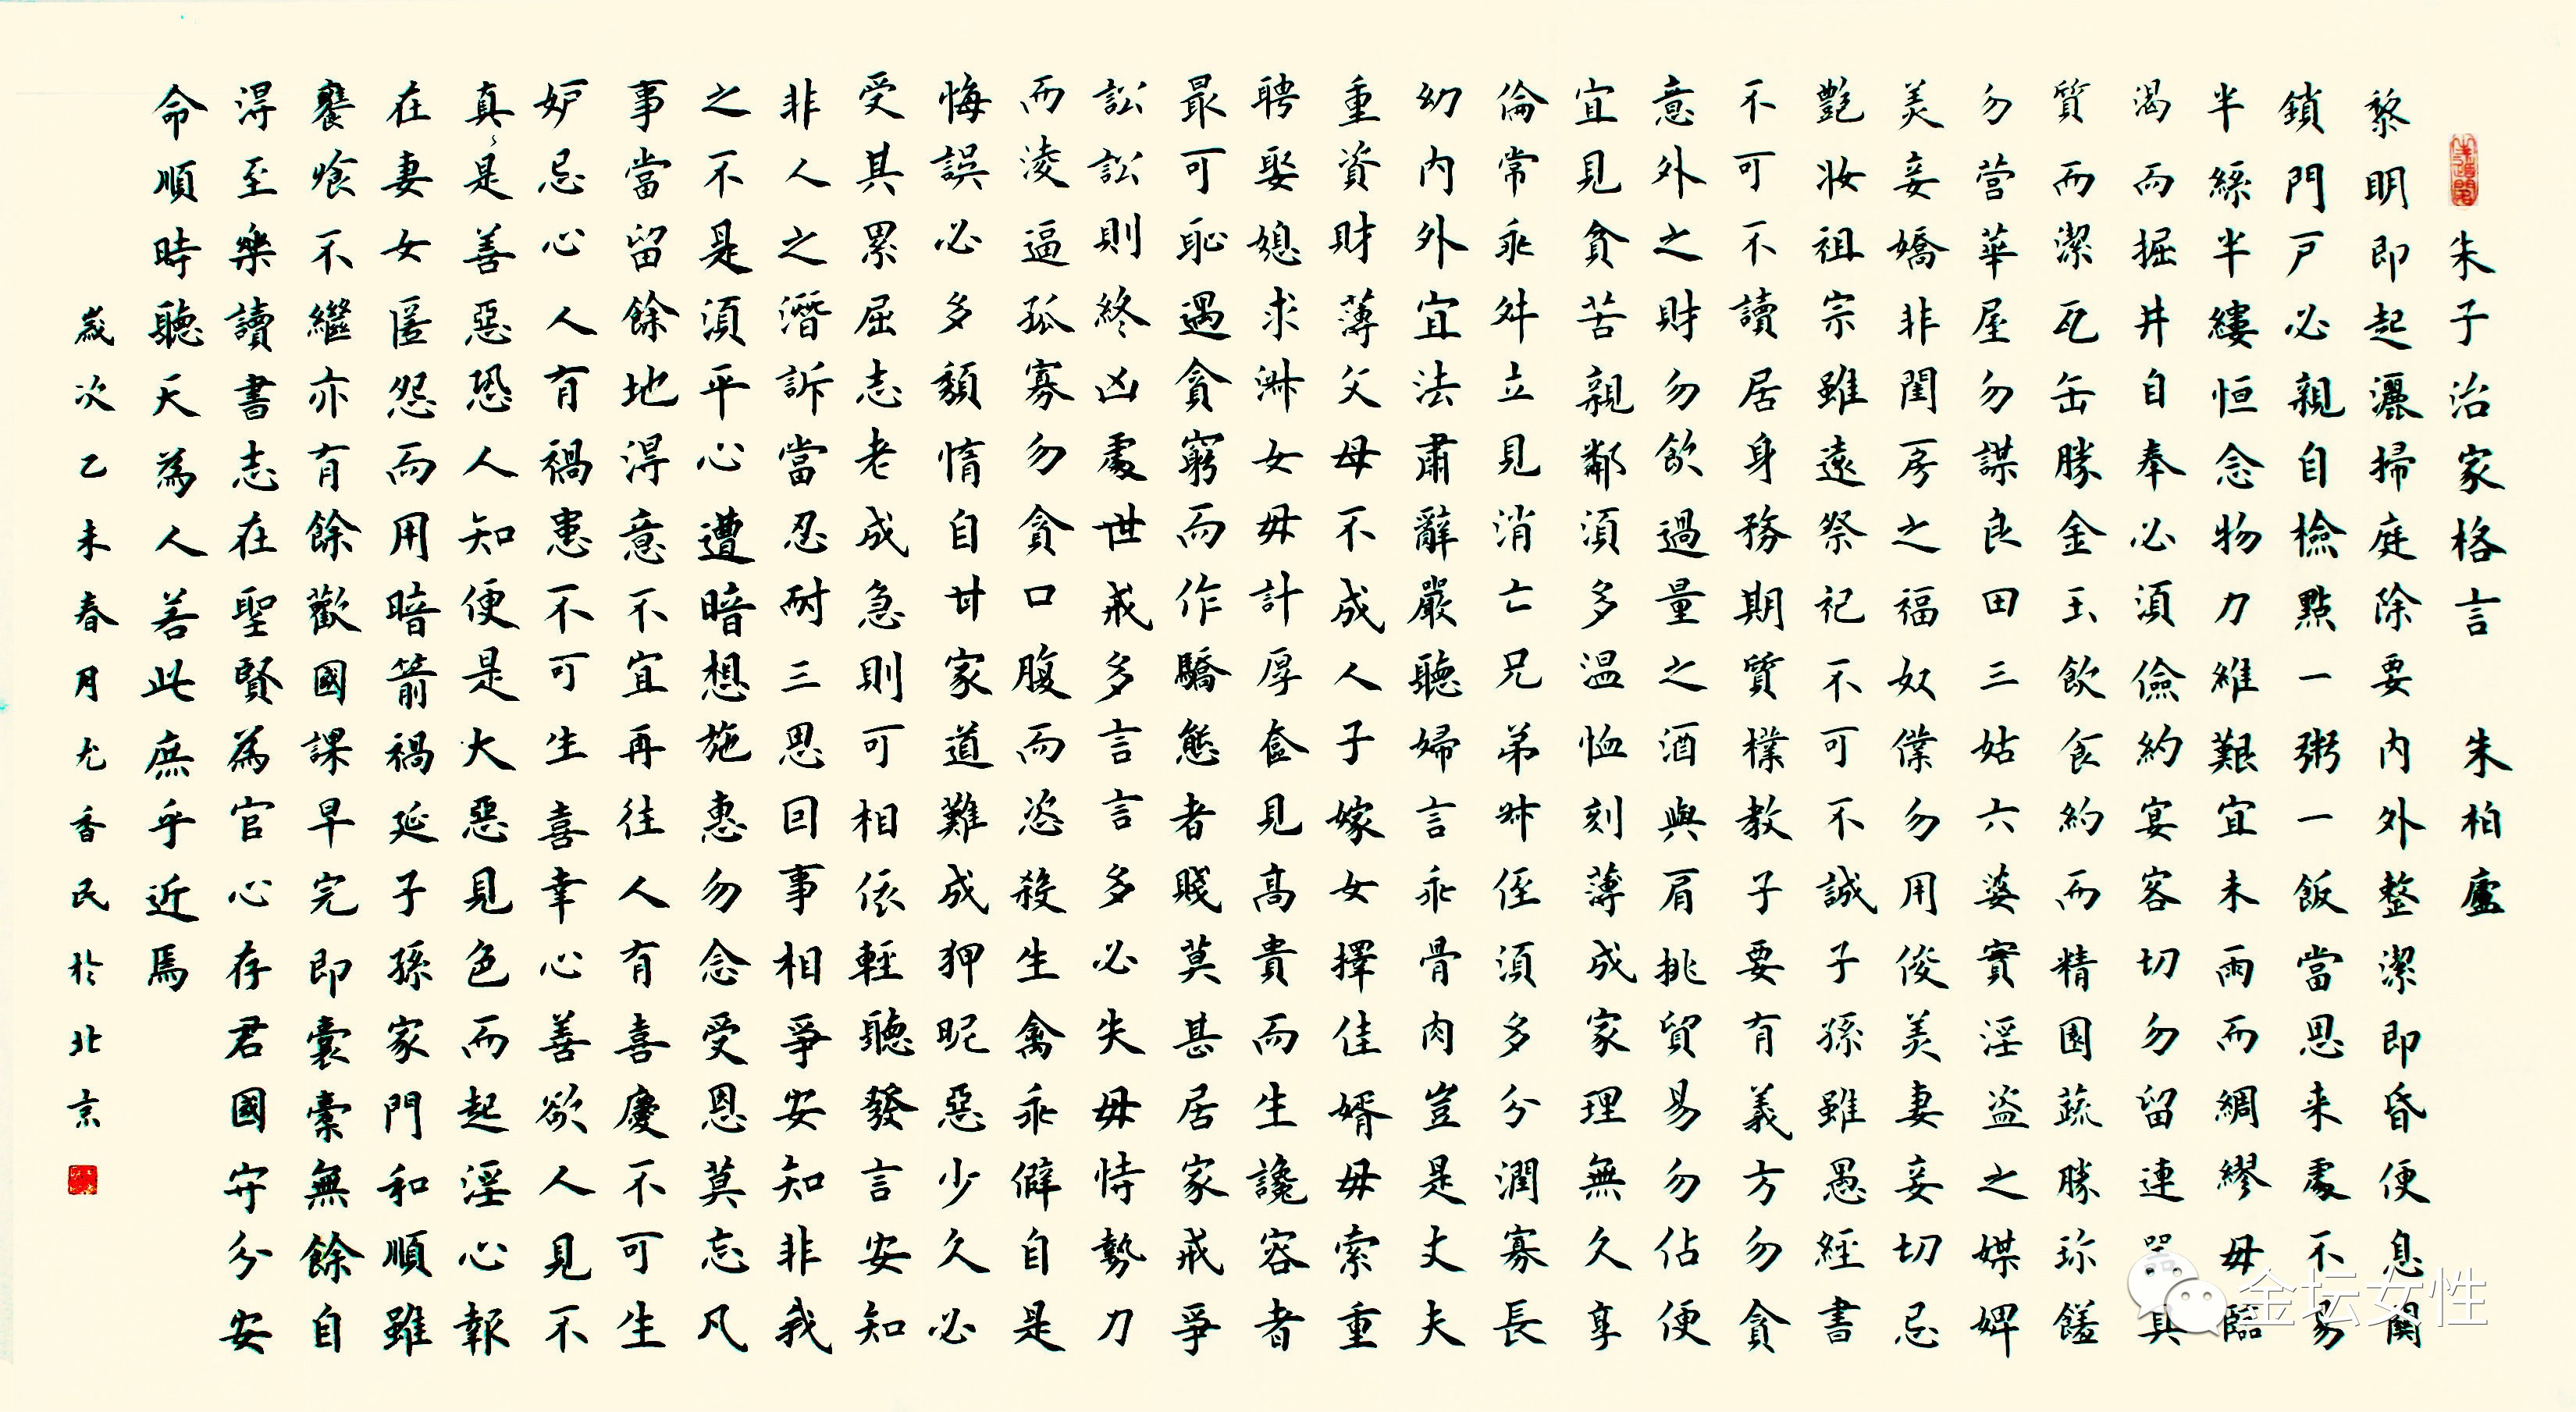 朱子治家格言 朱柏廬
黎明即起灑掃庭除要内外整潔即昏便息關
鎖門户必親自檢點一粥一飯當思来處不易
半絲半縷恒念物力維艱宜未雨而綢繆毋臨
渴而掘井自奉必須儉約宴客切勿留連器具
質而潔瓦缶勝金玉飲食約而精園蔬勝珍饈
勿營華屋勿謀良田三姑六婆實淫盗之媒婢
美妾嬌非閨房之福奴僕勿用俊美妻妾切忌
艷妝祖宗雖遠祭祀不可不誠子孫雖愚經書
不可不讀居身務期質樸教子要有義方勿貪
意外之財勿飲過量之酒與肩挑貿易勿佔便
宜見貪苦親鄰須多温恤刻薄成家理無久享
倫常乖舛立見消亡兄弟叔侄須多分潤寡長
幼内外宜法肅辭嚴聽婦言乖骨肉豈是丈夫
重資財薄父母不成人子嫁女擇佳婿毋索重
聘娶媳求淋女毋計厚奩見高貴而生讒容者
最可恥遇貪窮而作驕態者賤莫甚居家戒爭
訟訟則終凶處世戒多言言多必失毋恃勢力
而淩逼孤寡勿貪口腹而恣殺生禽乖僻自是
悔誤必多頹惰自甘家道難成狎昵惡少久必
受其累屈志老成急則可相依輕聽發言安知
非人之譖訴當忍耐三思回事相爭安知非我
之不是須平心遭暗想施惠勿念受恩莫忘凡
事當留餘地得意不宜再往人有喜慶不可生
妒忌心人有禍患不可生喜幸心善欲人見不
真々是善惡恐人知便是大惡見色而起淫心報
在妻女匿怨而用暗箭禍延子孫家門和順雖
饔飧不繼亦有餘歡國課早完即囊橐無餘自
得至樂讀書志在聖賢為官心存君國守分安
命順時聽天為人若此庶乎近焉
歲次乙未春月尤香民於北京
金坛女性